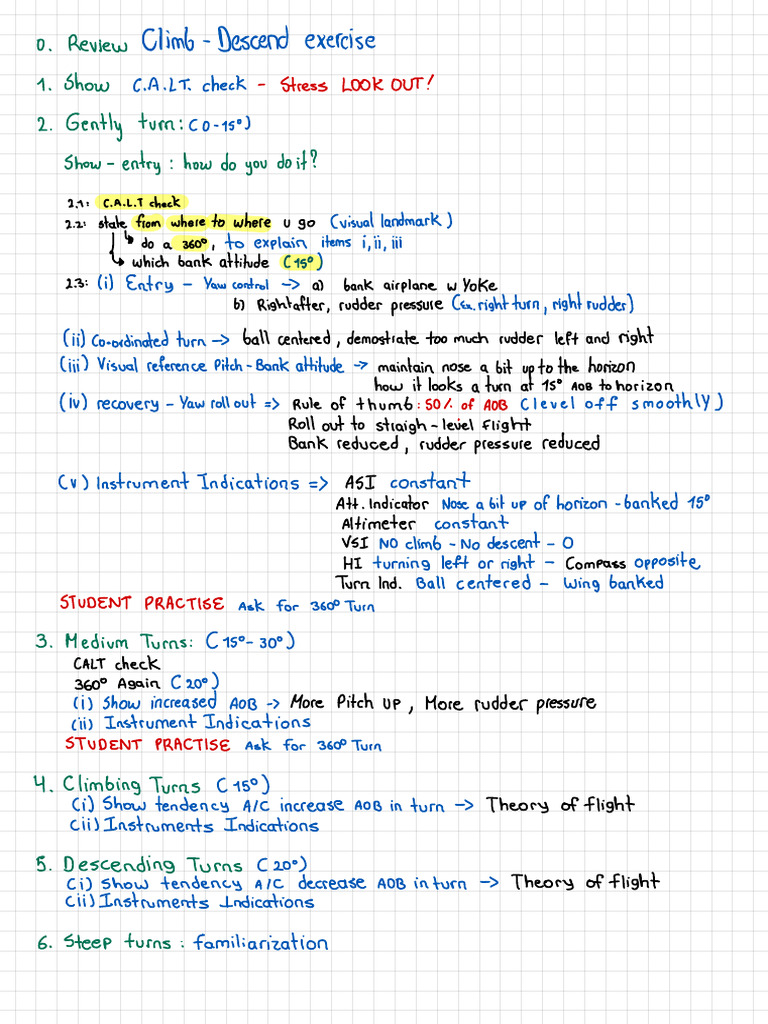 0. Review Climb - Descend exercise
1. Show C.A.L.T. check - Stress LOOK OUT!
2. Gently turn: (0-15º)
Show - entry : how do you do it?
2.1: C.A.L.T check
2.2: state from where to where u go (visual landmark)
do a 360º, to explain items i, ii, iii
which bank attitude (15º)
2.3: (i) Entry - Yaw control -> a) bank airplane w Yoke
b) Right after, rudder pressure (ex. right turn, right rudder)
(ii) Co-ordinated turn -> ball centered, demostrate too much rudder left and right
(iii) Visual reference Pitch-Bank attitude -> maintain nose a bit up to the horizon
how it looks a turn at 15º AOB to horizon
(iv) recovery - Yaw roll out => Rule of thumb: 50% of AOB (level off smoothly)
Roll out to straigh-level flight
Bank reduced, rudder pressure reduced
(v) Instrument Indications => ASI constant
Att. Indicator Nose a bit up of horizon - banked 15º
Altimeter constant
VSI NO climb - No descent - 0
HI turning left or right - Compass opposite
Turn Ind. Ball centered - Wing banked
STUDENT PRACTISE Ask for 360º Turn
3. Medium Turns: (15º- 30º)
CALT check
360º Again (20º)
(i) Show increased AOB -> More Pitch UP, More rudder pressure
(ii) Instrument Indications
STUDENT PRACTISE Ask for 360º Turn
4. Climbing Turns (15º)
(i) Show tendency A/C increase AOB in turn -> Theory of flight
(ii) Instruments Indications
5. Descending Turns (20º)
(i) Show tendency A/C decrease AOB in turn -> Theory of flight
(ii) Instruments Indications
6. Steep turns : familiarization